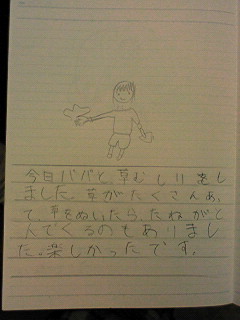 今日パパと草むしりをし
ました。草がたくさんあっ
て、草をぬいたら、たねがと
んでくるのもありまし
た。楽しかったです。